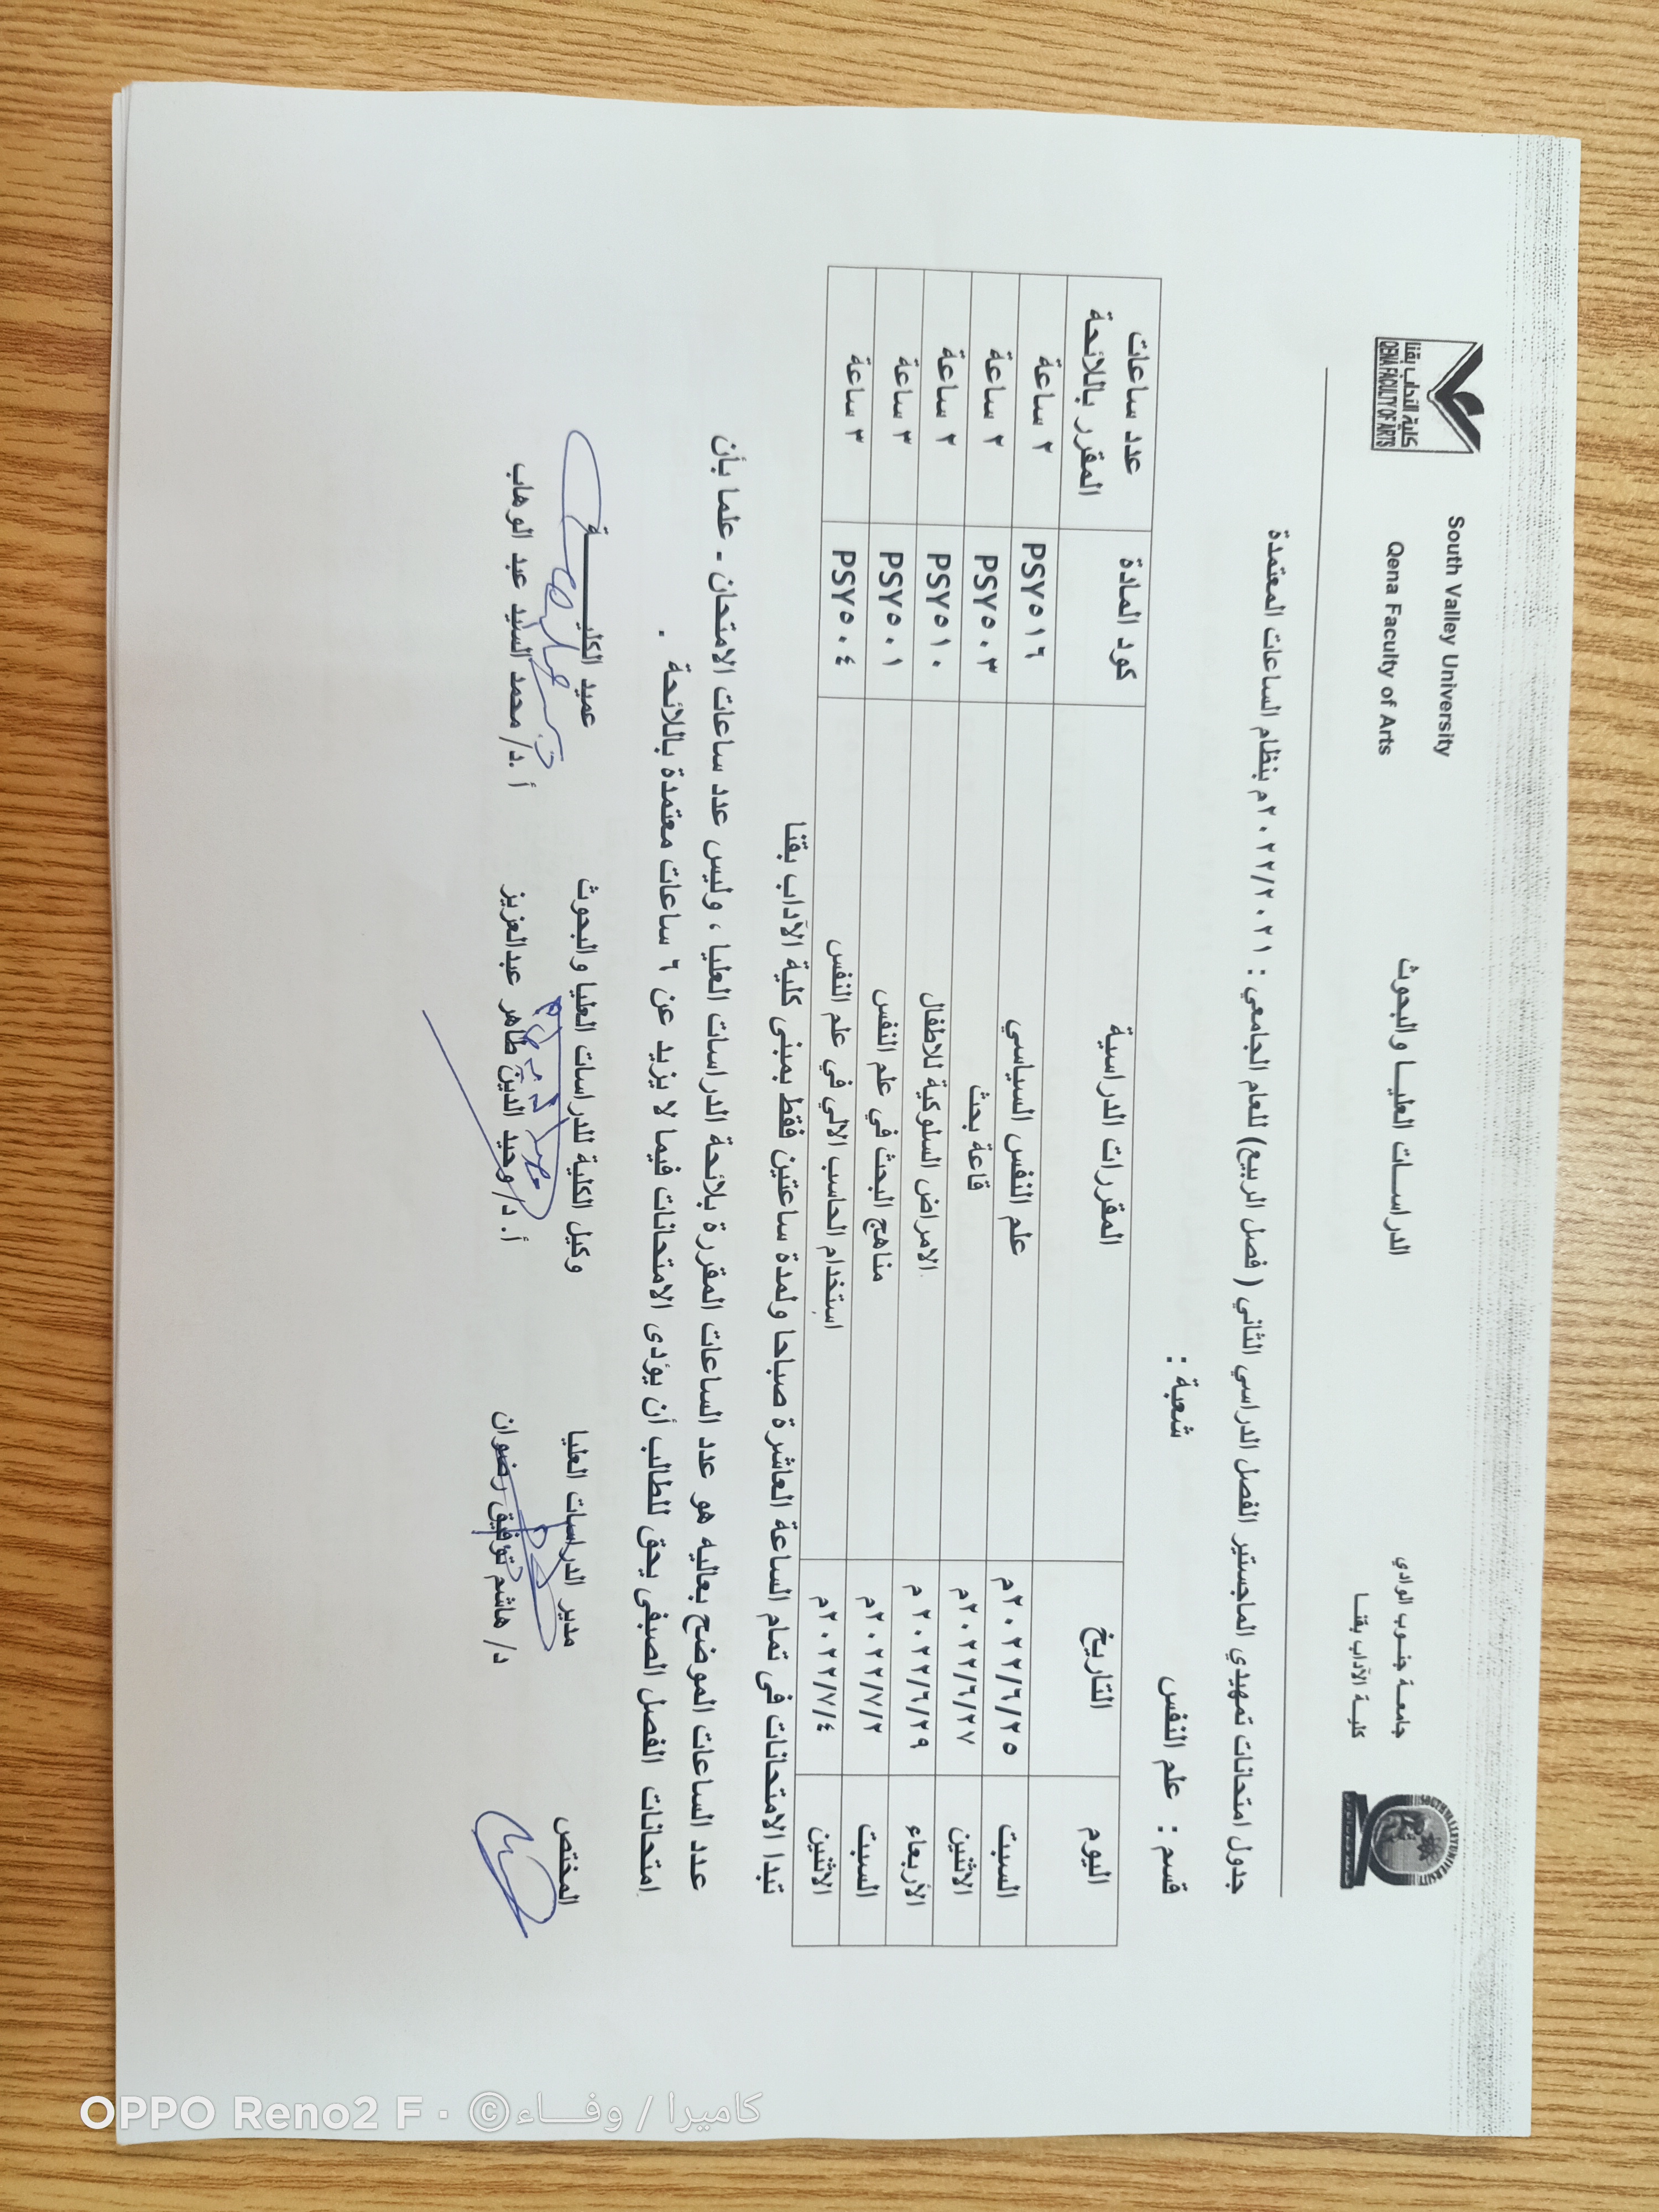 جامعـة جنـوب الوادي
كليـة الآداب بقنـا
الدراســات العليــا والبحوث
South Valley University
Qena Faculty of Arts
كلية الآداب بقنا
QENA FACULTY OF ARTS
جدول امتحانات تمهيدي الماجستير الفصل الدراسي الثاني ( فصل الربيع) للعام الجامعي : ٢٠٢٢/٢٠٢١م بنظام الساعات المعتمدة
قسم : علم النفس شعبة :
اليوم التاريخ المقررات الدراسية كود المادة عدد ساعات المقرر باللائحة
السبت ٢٠٢٢/٦/٢٥م علم النفس السياسي PSY٥١٦ ٢ ساعة
الاثنين ٢٠٢٢/٦/٢٧م قاعة بحث PSY٥٠٣ ٢ ساعة
الأربعاء ٢٠٢٢/٦/٢٩م الامراض السلوكية للاطفال PSY٥١٠ ٢ ساعة
السبت ٢٠٢٢/٧/٢م مناهج البحث في علم النفس PSY٥٠١ ٣ ساعة
الاثنين ٢٠٢٢/٧/٤م استخدام الحاسب الالي في علم النفس PSY٥٠٤ ٣ ساعة
تبدا الامتحانات فى تمام الساعة العاشرة صباحا ولمدة ساعتين فقط بمبنى كلية الآداب بقنا
عدد الساعات الموضح بعاليه هو عدد الساعات المقررة بلائحة الدراسات العليا ، وليس عدد ساعات الامتحان - علما بأن
امتحانات الفصل الصيفى يحق للطالب أن يؤدى الامتحانات فيما لا يزيد عن ٦ ساعات معتمدة باللائحة .
المختص مدير الدراسات العليا وكيل الكلية للدراسات العليا والبحوث عميد الكليـــــة
د/ هاشم توفيق رضوان أ. د/ وحيد الدين طاهر عبدالعزيز أ .د/ محمد السيد عبد الوهاب
OPPO Reno2 F · ©كاميرا / وفــــاء